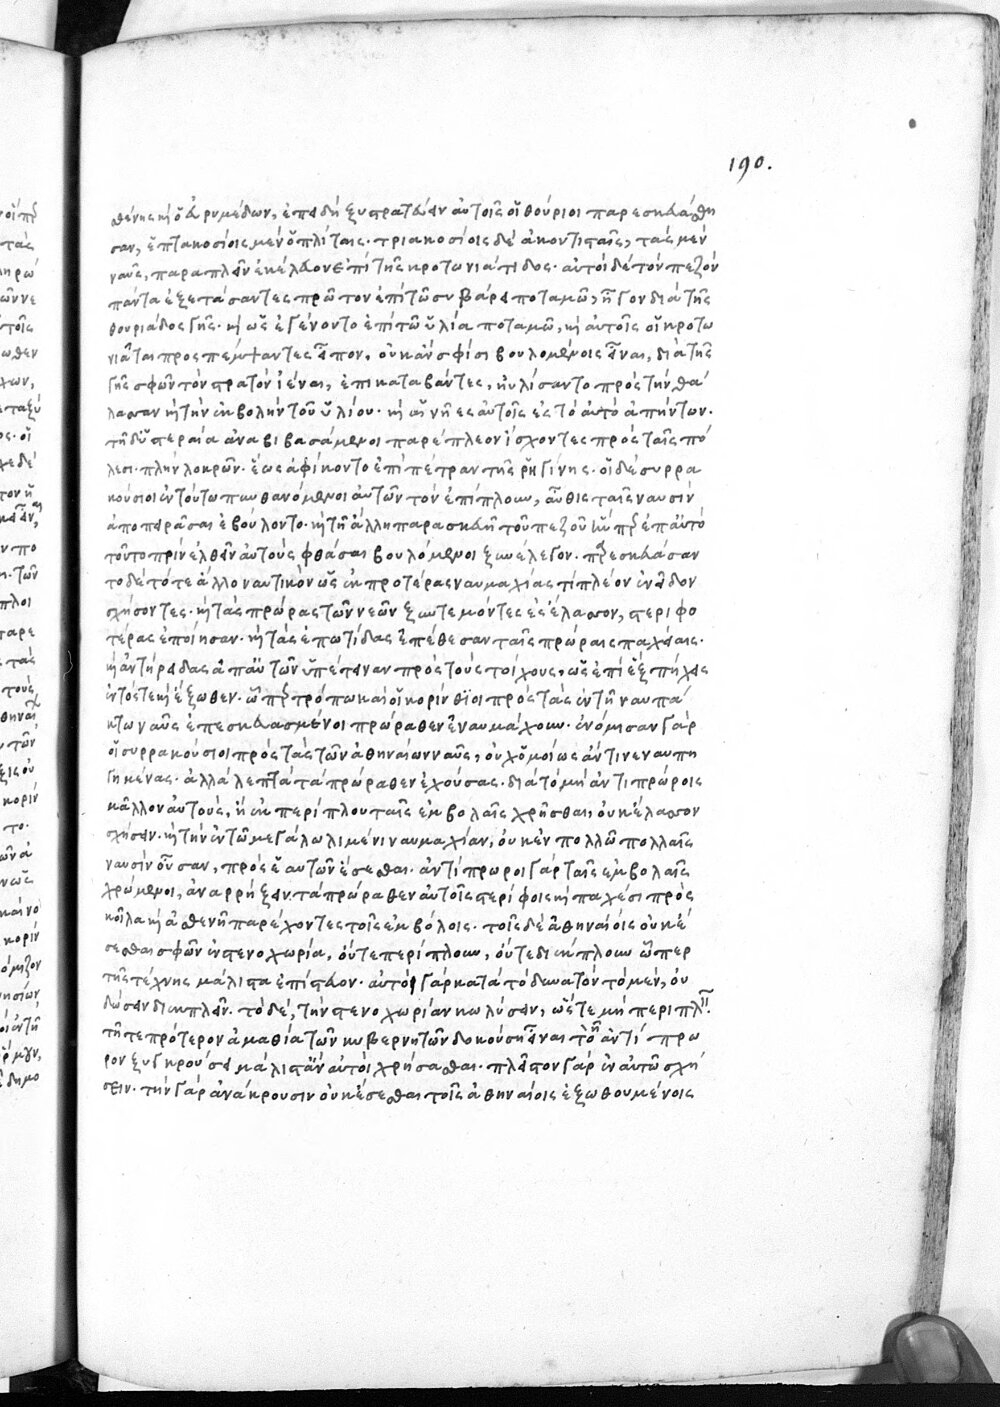 190.
σθένης κὴ ὁ εὐρυμέδων, ἐπειδὴ ξυστρατεύειν αὐτοῖς οἱ θούριοι παρεσκευάσθη
σαν, ἑπτακοσίοις μὲν ὁπλίταις· τριακοσίοις δὲ ἀκοντισταῖς, τὰς μὲν
ναῦς, παραπλεῖν ἐκέλευον ἐπὶ τῆς κροτωνιάτιδος· αὐτοὶ δὲ τὸν πεζὸν
πάντα ἐξετάσαντες πρῶτον ἐπὶ τῶ συβάρει ποταμῶ, ἦγον διὰ τῆς
θουριάδος γῆς· κὴ ὡς ἐγένοντο ἐπὶ τῶ ὑλία ποταμῶ, κὴ αὐτοῖς οἱ κροτω
νιᾶται προσπέμψαντες εἶπον, οὐκ ἂν σφίσι βουλομένοις εἶναι, διὰ τῆς
γῆς σφῶν τὸν στρατὸν ἰέναι, ἐπικαταβάντες, ηὐλίσαντο πρὸς τὴν θά
λασσαν κὴ τὴν ἐκβολὴν τοῦ ὑλίου· κὴ αἱ νῆες αὐτοῖς ἐς τὸ αὐτὸ ἀπήντων·
τῆ δ' ὑστεραία ἀναβιβασάμενοι παρέπλεον ἴσχοντες πρὸς ταῖς πό
λεσι· πλὴν λοκρῶν· ἕως ἀφίκοντο ἐπὶ πέτραν τῆς ῥηγίνης· οἱ δὲ συρρα
κούσιοι ἐν τούτω πυνθανόμενοι αὐτῶν τὸν ἐπίπλουν, αὖθις ταῖς ναυσὶν
ἀποπειρᾶσαι ἐβούλοντο· κὴ τῆ ἄλλη παρασκευῆ τοῦ πεζοῦ ἥνπερ ἐπ' αὐτὸ
τοῦτο πρὶν ἐλθεῖν αὐτοὺς φθάσαι βουλόμενοι ξυνέλεγον· παρεσκευάσαν
το δὲ τό τε ἄλλο ναυτικὸν ὡς ἐκ προτέρας ναυμαχίας τι πλέον ἐνεῖδον
σχήσοντες· κὴ τὰς πρώρας τῶν νεῶν ξυντεμόντες ἐς ἔλασσον, στεριφο
τέρας ἐποίησαν· κὴ τὰς ἐπωτίδας ἐπέθεσαν ταῖς πρώραις παχείας·
κὴ ἀντήριδας ἀπ' αὐτῶν ὑπέτειναν πρὸς τοὺς τοίχους, ὡς ἐπὶ ἓξ πήχεις
ἐντός τε κὴ ἔξωθεν· ὧπερ τρόπω καὶ οἱ κορίνθιοι πρὸς τὰς ἐν τῆ ναυπά
κτω ναῦς ἐπεσκευασμένοι πρώραθεν ἐναυμάχουν· ἐνόμισαν γὰρ
οἱ συρρακούσιοι πρὸς τὰς τῶν ἀθηναίων ναῦς, οὐχ ὁμοίως ἀντινεναυπη
γημένας· ἀλλὰ λεπτὰ τὰ πρώραθεν ἐχούσας· διὰ τὸ μὴ ἀντιπρώροις
μᾶλλον αὐτούς, ἢ ἐκ περίπλου ταῖς ἐμβολαῖς χρῆσθαι, οὐκ ἔλασσον
σχήσειν· κὴ τὴν ἐν τῶ μεγάλω λιμένι ναυμαχίαν, οὐκ ἐν πολλῶ πολλαῖς
ναυσὶν οὖσαν, πρὸς ἑαυτῶν ἔσεσθαι· ἀντίπρωροι γὰρ ταῖς ἐμβολαῖς
χρώμενοι, ἀναρρήξειν τὰ πρώραθεν αὐτοῖς στερίφοις κὴ παχέσι πρὸς
κοῖλα κὴ ἀσθενῆ παρέχοντες τοῖς ἐμβόλοις· τοῖς δὲ ἀθηναίοις οὐκ ἔ
σεσθαι σφῶν ἐν στενοχωρία, οὔτε περίπλουν, οὔτε διέκπλουν ὧπερ
τῆς τέχνης μάλιστα ἐπίστευον· αὐτοὶ γὰρ κατὰ τὸ δυνατὸν τὸ μέν, οὐ
δώσειν διεκπλεῖν· τὸ δέ, τὴν στενοχωρίαν κωλύσειν, ὥστε μὴ περιπλεῖν·
τῆ τε πρότερον ἀμαθία τῶν κυβερνητῶν δοκούση εἶναι τὸ ἀντίπρω
ρον ξυγκροῦσαι μάλιστ' ἂν αὐτοὶ χρήσασθαι· πλεῖστον γὰρ ἐν αὐτῶ σχή
σειν· τὴν γὰρ ἀνάκρουσιν οὐκ ἔσεσθαι τοῖς ἀθηναίοις ἐξωθουμένοις